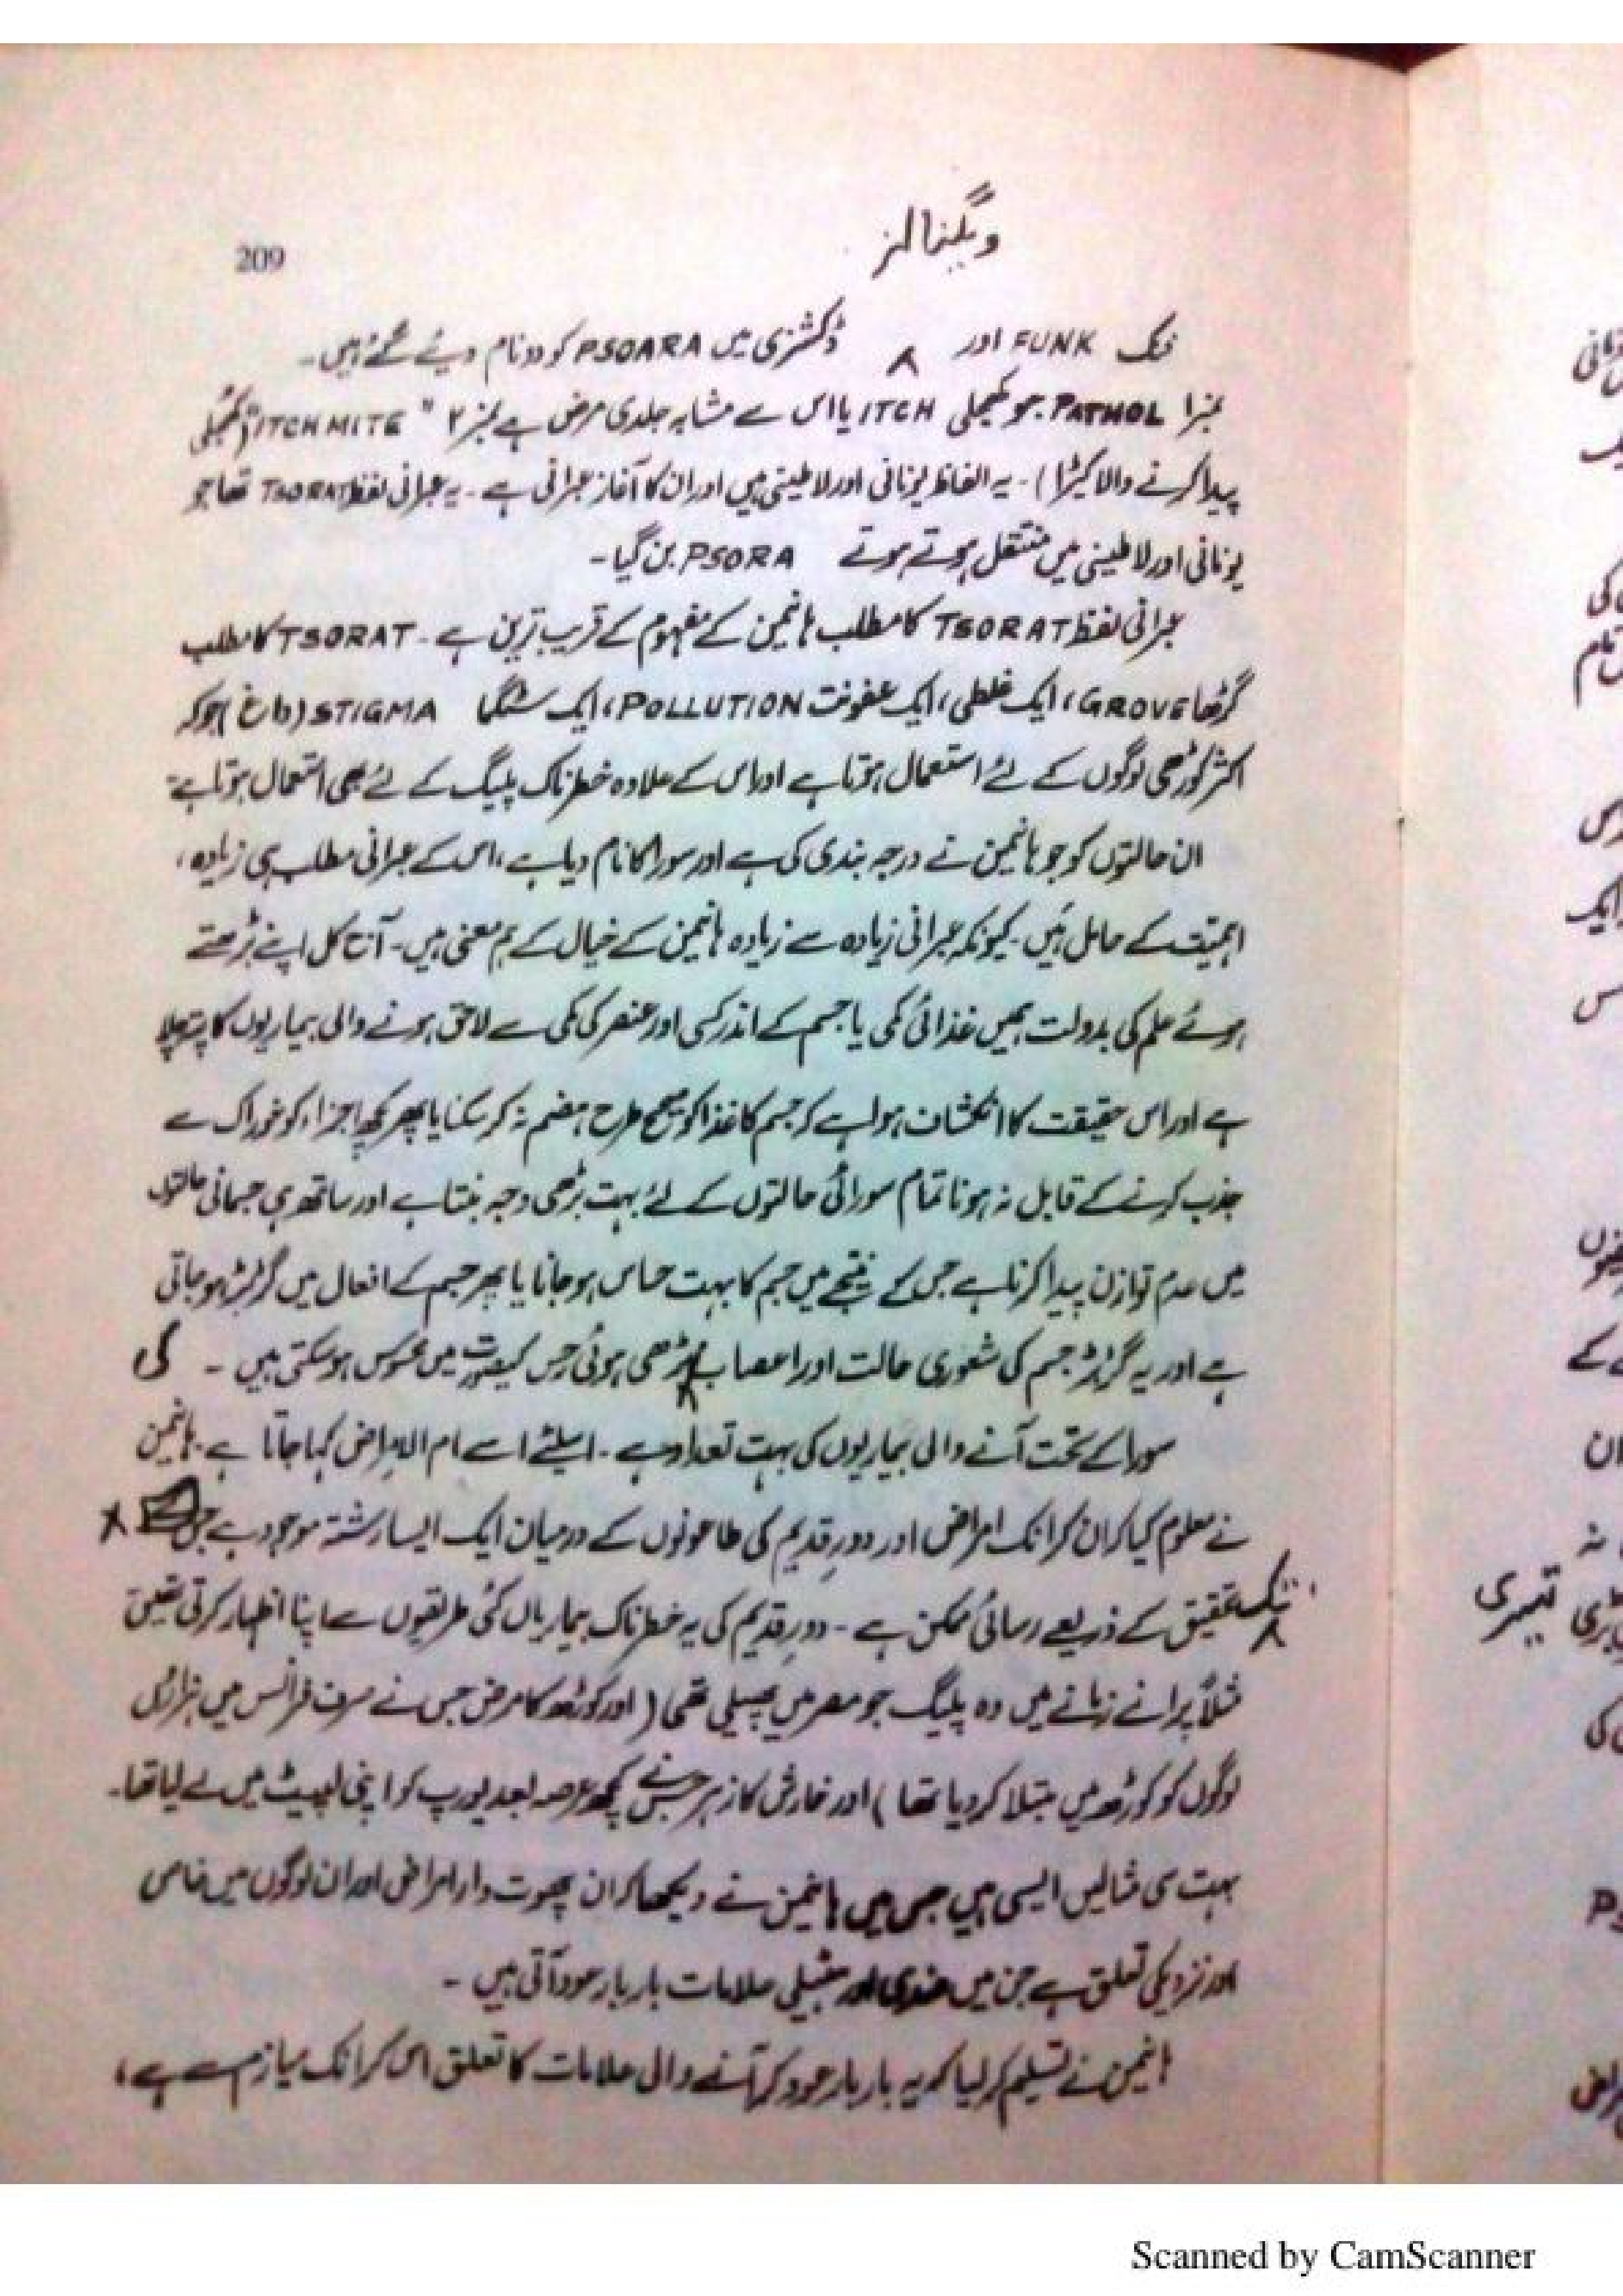 ویگنالز
209
فنک FUNK اور ڈکشنری میں PSOARA کو دو نام دیئے گئے ہیں۔
نمبر۱ PATHOL. جو کھجلی ITCH یا اس سے مشابہ جلدی مرض ہے نمبر ۲ "ITCH MITE" (کھجلی
پیدا کرنے والا کیڑا)۔ یہ الفاظ یونانی اور لاطینی ہیں اور ان کا آغاز عبرانی ہے۔ یہ عبرانی لفظ TSORAT تھا جو
یونانی اور لاطینی میں منتقل ہوتے ہوتے PSORA بن گیا۔
عبرانی لفظ TSORAT کا مطلب ہانیمن کے مفہوم کے قریب ترین ہے۔ TSORAT کا مطلب
گڑھا GROVE، ایک غلطی، ایک عفونت POLLUTION، ایک سٹگما STIGMA (داغ) جو کہ
اکثر کوڑھی لوگوں کے لئے استعمال ہوتا ہے اور اس کے علاوہ خطرناک پلیگ کے لئے بھی استعمال ہوتا ہے۔
ان حالتوں کو جو ہانیمن نے درجہ بندی کی ہے اور سورا کا نام دیا ہے، اس کے عبرانی مطلب ہی زیادہ،
اہمیت کے حامل ہیں۔ کیونکہ عبرانی زیادہ سے زیادہ ہانیمن کے خیال کے ہم معنی ہیں۔ آج کل اپنے بڑھتے
ہوئے علم کی بدولت ہمیں غذائی کمی یا جسم کے اندر کسی اور عنصر کی کمی سے لاحق ہونے والی بیماریوں کا پتہ چلا
ہے اور اس حقیقت کا انکشاف ہوا ہے کہ جسم کا غذا کو صحیح طرح ہضم نہ کر سکنا یا پھر کچھ اجزاء کو خوراک سے
جذب کرنے کے قابل نہ ہونا تمام سورائی حالتوں کے لئے بہت بڑی وجہ بنتا ہے اور ساتھ ہی جسمانی حالتوں
میں عدم توازن پیدا کرتا ہے جس کے نتیجے میں جسم کا بہت حساس ہو جانا یا پھر جسم کے افعال میں گڑبڑ ہو جاتی
ہے اور یہ گڑبڑ جسم کی شعوری حالت اور اعصاب کی بڑھی ہوئی حس کی صورت میں محسوس ہو سکتی ہیں۔
سورا کے تحت آنے والی بیماریوں کی بہت تعداد ہے۔ اسلئے اسے ام الامراض کہا جاتا ہے۔ ہانیمن
نے معلوم کیا کہ ان کرانک امراض اور دورِ قدیم کی طاعونوں کے درمیان ایک ایسا رشتہ موجود ہے جس
تک تحقیق کے ذریعے رسائی ممکن ہے۔ دورِ قدیم کی یہ خطرناک بیماریاں کئی طریقوں سے اپنا اظہار کرتی تھیں
مثلاً پرانے زمانے میں وہ پلیگ جو مصر میں پھیلی تھی (اور کوڑھ کا مرض جس نے صرف فرانس میں ہزاروں
لوگوں کو کوڑھ میں مبتلا کر دیا تھا) اور خارش کا زہر جس نے کچھ عرصہ بعد یورپ کو اپنی لپیٹ میں لے لیا تھا۔
بہت سی مثالیں ایسی ہیں جس میں ہانیمن نے دیکھا کہ ان چھوت دار امراض اور ان لوگوں میں خاص
اور نزدیکی تعلق ہے جن میں علامات بار بار عود آتی ہیں۔
ہانیمن نے تسلیم کر لیا کہ یہ بار بار عود کر آنے والی علامات کا تعلق اس کرانک میازم سے ہے،
Scanned by CamScanner